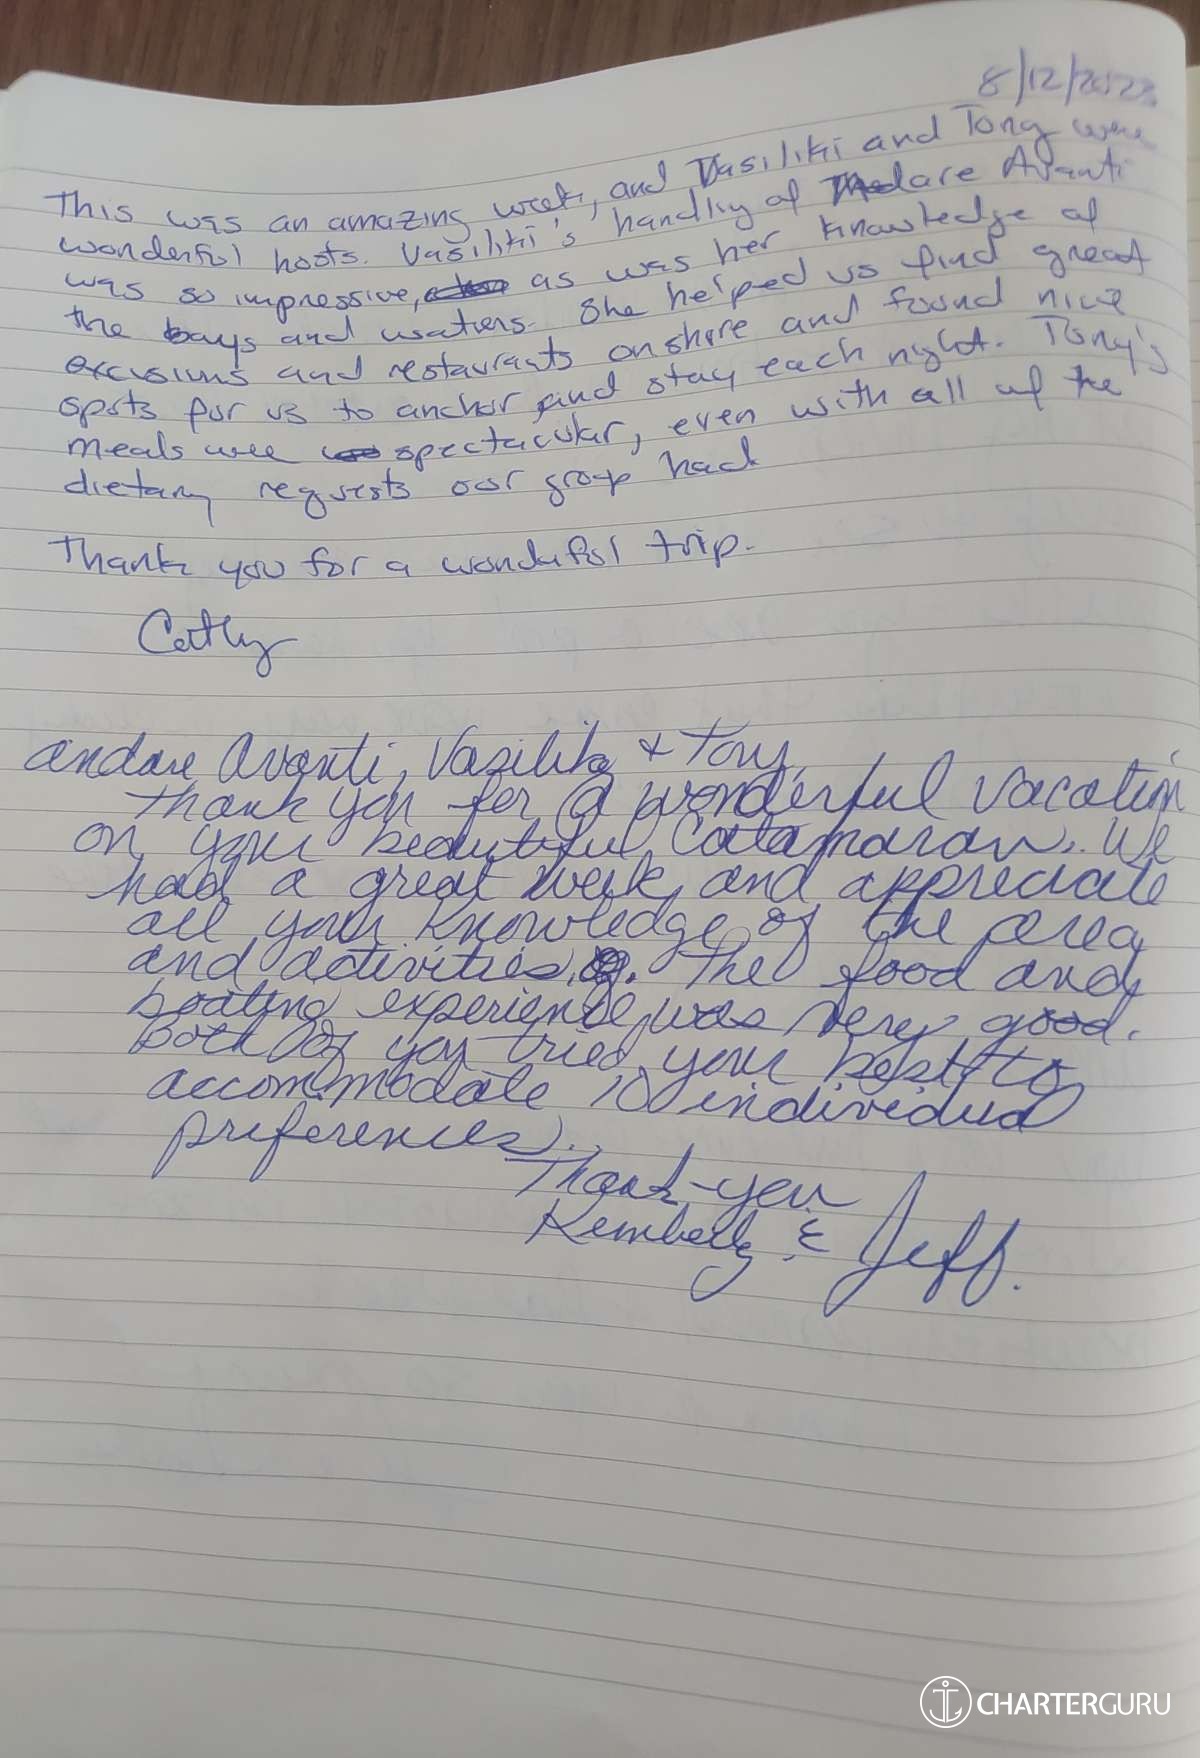 8/12/2023
This was an amazing week, and Vasiliki and Tony were
wonderful hosts. Vasiliki's handling of Andare Avanti
was so impressive, as was her knowledge of
the bays and waters. She helped us find great
excusions and restaurants onshore and found nice
spots for us to anchor and stay each night. Tony's
meals wee spectacular, even with all of the
dietary requests our group had
Thank you for a wonderful trip.
Cathy
Andare Avanti, Vasiliki & Tony,
Thank you for a wonderful vacation
on your beautiful Catamaran. We
had a great week and appreciate
all your knowledge of the area
and activities. The food and
boating experience was very good.
Both of you tried your best to
accommodate 10 individual
preferences.
Thank-you
Kimberly & Jeff.
CHARTERGURU